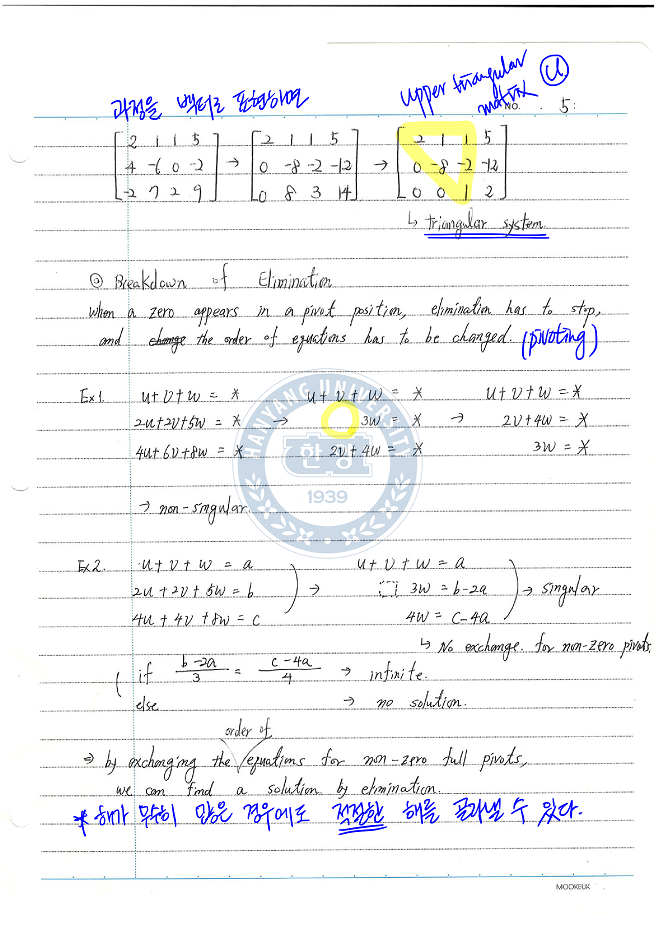 과정을 벡터로 표현하면
upper triangular matrix U
NO. 5
2 1 1 5 2 1 1 5 2 1 1 5
4 -6 0 -2 → 0 -8 -2 -12 → 0 -8 -2 -12
-2 7 2 9 0 8 3 14 0 0 1 2
↳ triangular system
⊙ Breakdown of Elimination
When a zero appears in a pivot position, elimination has to stop,
and change the order of equations has to be changed. (pivoting)
Ex1. u+v+w = * u+v+w = * u+v+w = *
2u+2v+5w = * → 3w = * → 2v+4w = *
4u+6v+8w = * 2v+4w = * 3w = *
HANYANG UNIVERSITY
한양
1939
→ non-singular
Ex2. u+v+w = a u+v+w = a
2u+2v+5w = b ) → 3w = b-2a ) → singular
4u+4v+8w = c 4w = c-4a
↳ No exchange. for non-zero pivots.
( if b-2a/3 = c-4a/4 → infinite.
else → no solution.
order of
⇒ by exchanging the equations for non-zero full pivots,
we can find a solution by elimination.
* 해가 무수히 많은 경우에도 적절한 해를 골라낼 수 있다.
MOOKEUK